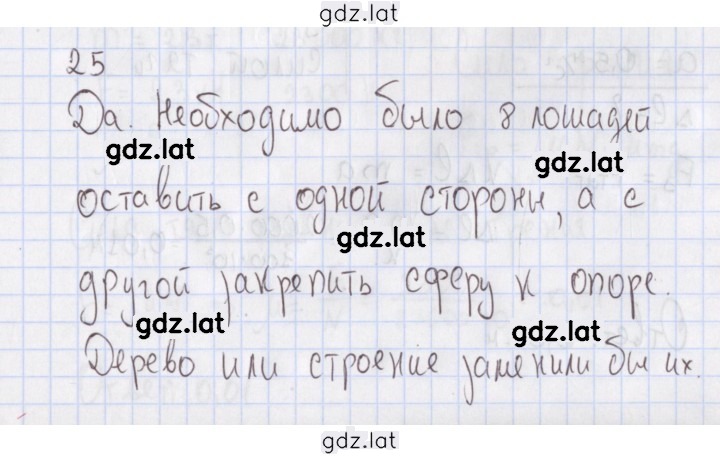 gdz.lat
25
Да. Необходимо было 8 лошадей
gdz.lat
gdz.lat
оставить с одной стороны, а с
gdz.lat
другой закрепить сферу к опоре.
gdz.lat
gdz.lat
Дерево или строение заменили бы их.
gdz.lat